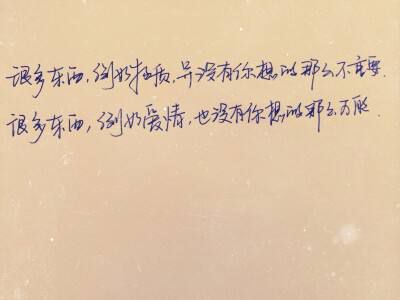 很多东西，例如物质，并没有你想的那么不重要.
很多东西，例如爱情，也没有你想的那么万能.